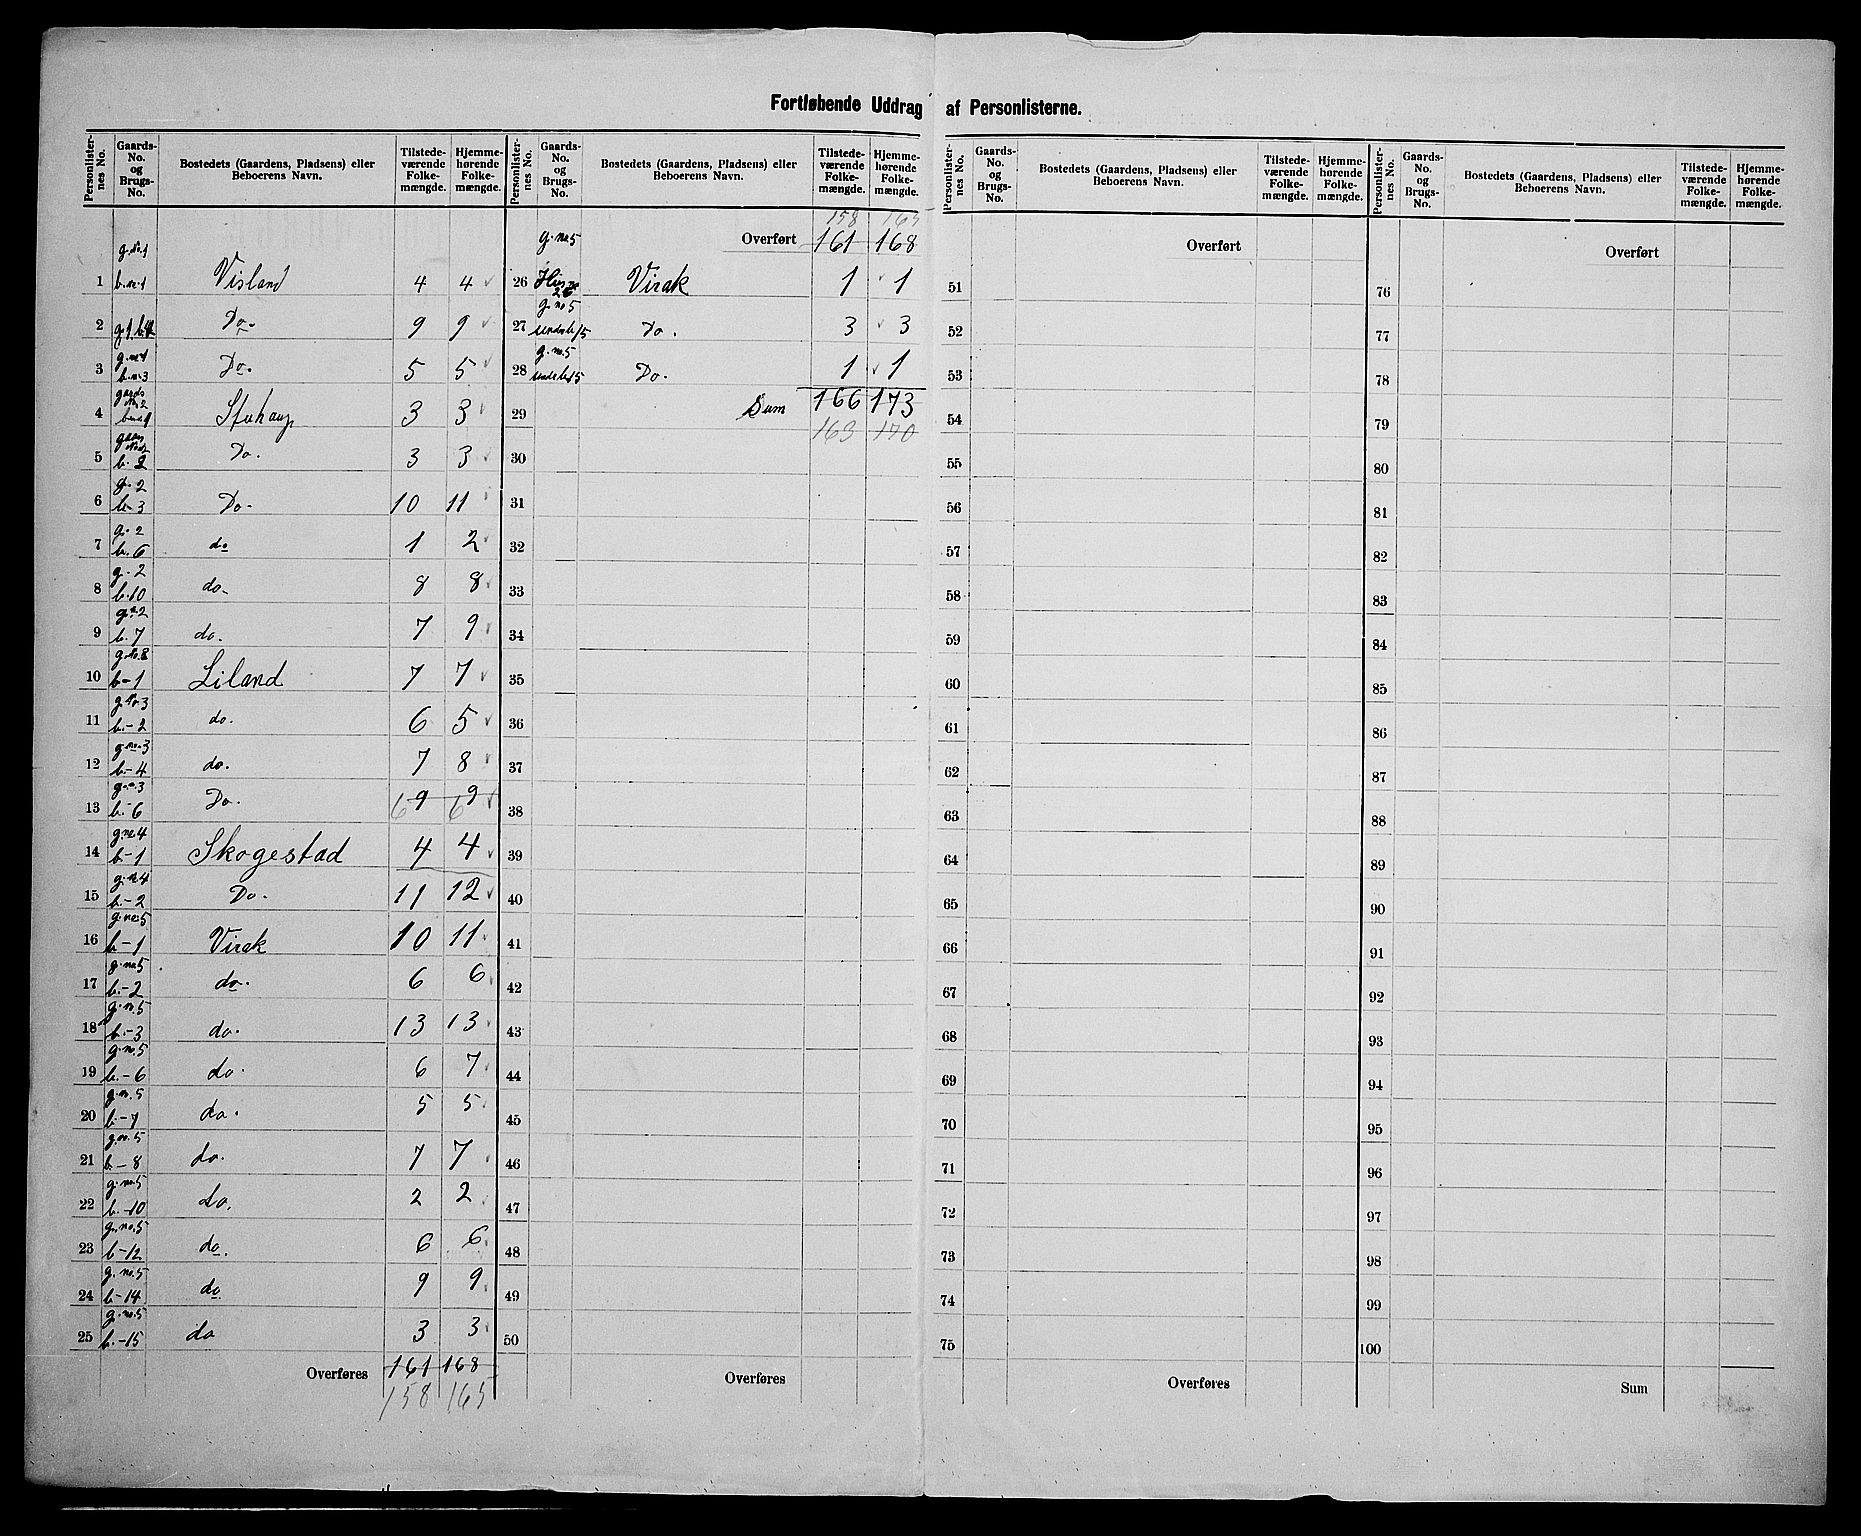 Fortløbende Uddrag af Personlisterne.
Personlister-nes No. | Gaards-No. og Brugs-No. | Bostedets (Gaardens, Pladsens) eller Beboerens Navn. | Tilstede-værende Folke-mængde. | Hjemme-hørende Folke-mængde.
1 | g. No. 1 b. n. 1 | Visland | 4 | 4
2 | g. 1, b. | Do. | 9 | 9
3 | g. n. 1 b. n. 3 | Do. | 5 | 5
4 | gaards No. 2 | | 3 | 3
5 | b. 2 | Do. | 3 | 3
6 | g. 2 b. 3 | Do. | 10 | 11
7 | g. 2 b. 6 | do | 1 | 2
8 | g. 2 b. 10 | do. | 8 | 8
9 | g. n. 2 b. 7 | do. | 7 | 9
10 | g. No. b. 1 | Liland | 7 | 7
11 | g. No. 3 b. - 2 | do. | 6 | 5
12 | g. no. 3 b. - 4 | do. | 7 | 8
13 | g. n. 3 b. - 6 | Do. | 9 6 | 9 6
14 | g. no. 4 b - 1 | Skogestad | 4 | 4
15 | g. n. 4 b. - 2 | Do. | 11 | 12
16 | g. no. 5 b - 1 | Virak | 10 | 11
17 | g. no. 5 b. - 2 | do. | 6 | 6
18 | g. no. 5 b. - 3 | do. | 13 | 13
19 | g. no. 5 b. - 6 | do. | 6 | 7
20 | g. no. 5 b. - 7 | do. | 5 | 5
21 | g. no. 5 b. - 8 | do. | 7 | 7
22 | g. no. 5 b. - 10 | do. | 2 | 2
23 | g. no. 5 b - 12 | do. | 6 | 6
24 | g. no. 5 b - 14 | do | 9 | 9
25 | g. no. 5 b. - 15 | do | 3 | 3
Overføres | 161 | 168
158 | 165
Personlister-nes No. | Gaards-No. og Brugs-No. | Bostedets (Gaardens, Pladsens) eller Beboerens Navn. | Tilstede-værende Folke-mængde. | Hjemme-hørende Folke-mængde.
158 | 165
Overført | 161 | 168
26 | g. no. 5 | Virak | 1 | 1
27 | g. no. 5 15 | Do. | 3 | 3
28 | g. no. 5 15 | Do. | 1 | 1
29 | Sum | 166 | 173
163 | 170
30
31
32
33
34
35
36
37
38
39
40
41
42
43
44
45
46
47
48
49
50
Overføres
Personlister-nes No. | Gaards-No. og Brugs-No. | Bostedets (Gaardens, Pladsens) eller Beboerens Navn. | Tilstede-værende Folke-mængde. | Hjemme-hørende Folke-mængde.
Overført
51
52
53
54
55
56
57
58
59
60
61
62
63
64
65
66
67
68
69
70
71
72
73
74
75
Overføres
Personlister-nes No. | Gaards-No. og Brugs-No. | Bostedets (Gaardens, Pladsens) eller Beboerens Navn. | Tilstede-værende Folke-mængde. | Hjemme-hørende Folke-mængde.
Overført
76
77
78
79
80
81
82
83
84
85
86
87
88
89
90
91
92
93
94
95
96
97
98
99
100
Sum